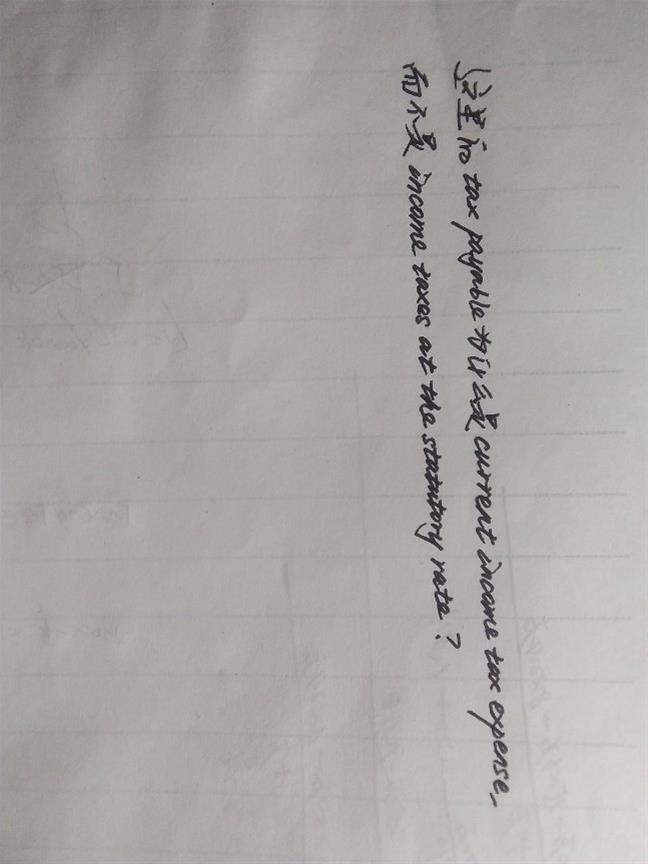 这里的tax payable为什么是current income tax expense,
而不是income taxes at the statutory rate?